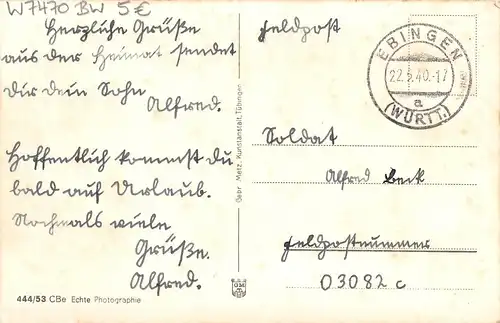 W7470 BW 5€
Herzliche Grüße
aus der Heimat sendet
Dir dein Sohn
Alfred.
Hoffentlich kommst du
bald auf Urlaub.
Nochmals viele
Grüße.
Alfred.
444/53 CBe Echte Photographie
Gebr. Metz, Kunstanstalt, Tübingen
GM
Feldpost
EBINGEN
22.5.40.-17
a
(WÜRTT.)
Soldat
Alfred Beck
Feldpostnummer
03082 c